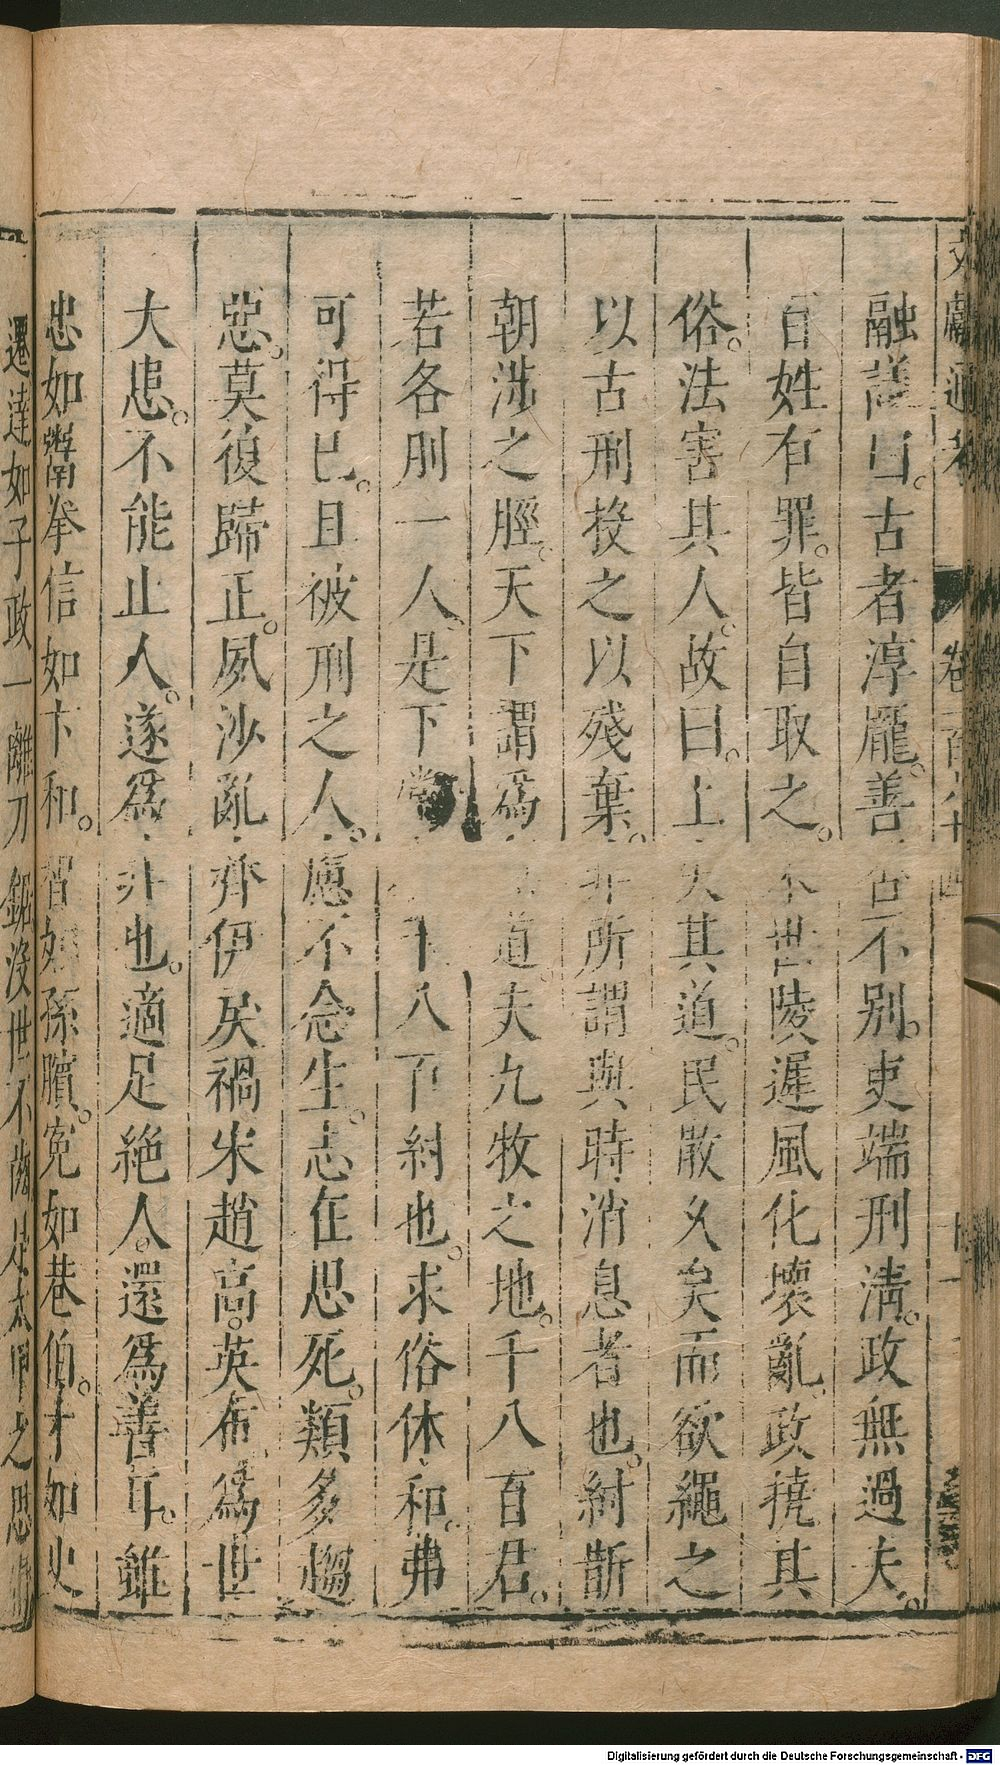 文獻通考 卷一百六十四 十一
融議曰。古者淳龐。善否不別。吏端刑淸。政無過失。
百姓有罪。皆自取之。末世陵遲。風化壞亂。政撓其
俗。法害其人。故曰。上失其道。民散久矣。而欲繩之
以古刑。投之以殘棄。非所謂與時消息者也。紂斮
朝涉之脛。天下謂爲無道。夫九牧之地。千八百君。
若各刖一人。是下常有千八百紂也。求俗休和。弗
可得已。且被刑之人。慮不念生。志在思死。類多趨
惡。莫復歸正。夙沙亂齊。伊戾禍宋。趙高。英布爲世
大患。不能止人。遂爲非也。適足絶人。還爲善耳。雖
忠如鬻拳。信如卞和。智如孫臏。寃如巷伯。才如史
遷。達如子政。一離刀鋸。沒世不齒。是太甲之思
Digitalisierung gefördert durch die Deutsche Forschungsgemeinschaft - DFG